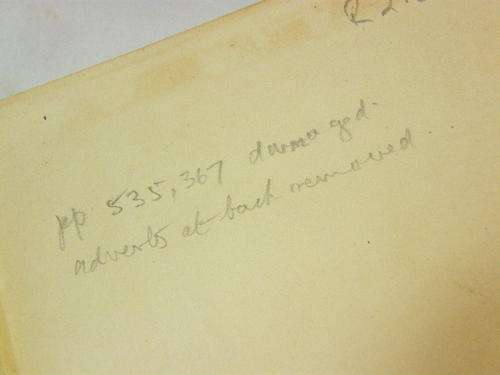 pp. 535, 367 damaged.
adverts at back removed.